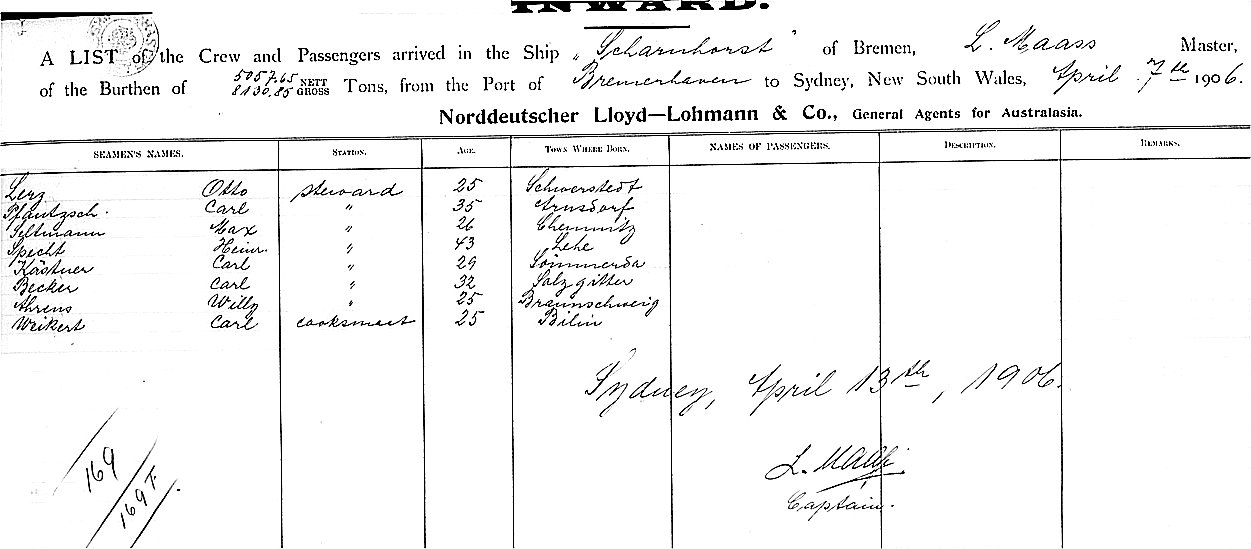 INWARD.
A LIST of the Crew and Passengers arrived in the Ship "Scharnhorst" of Bremen, L. Maass Master,
of the Burthen of 5057.65 NETT 8130.85 GROSS Tons, from the Port of Bremerhaven to Sydney, New South Wales, April 7th 1906.
Norddeutscher Lloyd—Lohmann & Co., General Agents for Australasia.
SEAMEN'S NAMES. STATION. AGE. TOWN WHERE BORN. NAMES OF PASSENGERS. DESCRIPTION. REMARKS.
Lerz Otto steward 25 Schwerstedt
Pfautzsch. Carl " 35 Arnsdorf
Seltmann Max " 26 Chemnitz
Specht Heinr. " 43 Lehe
Kästner Carl " 29 Sömmerda
Becker Carl " 32 Salzgitter
Ahrens Willy " 25 Braunschweig
Weikert Carl cooksmaat 25 Bilin
Sydney, April 13th, 1906.
L. Maass
Captain.
169
169 F.